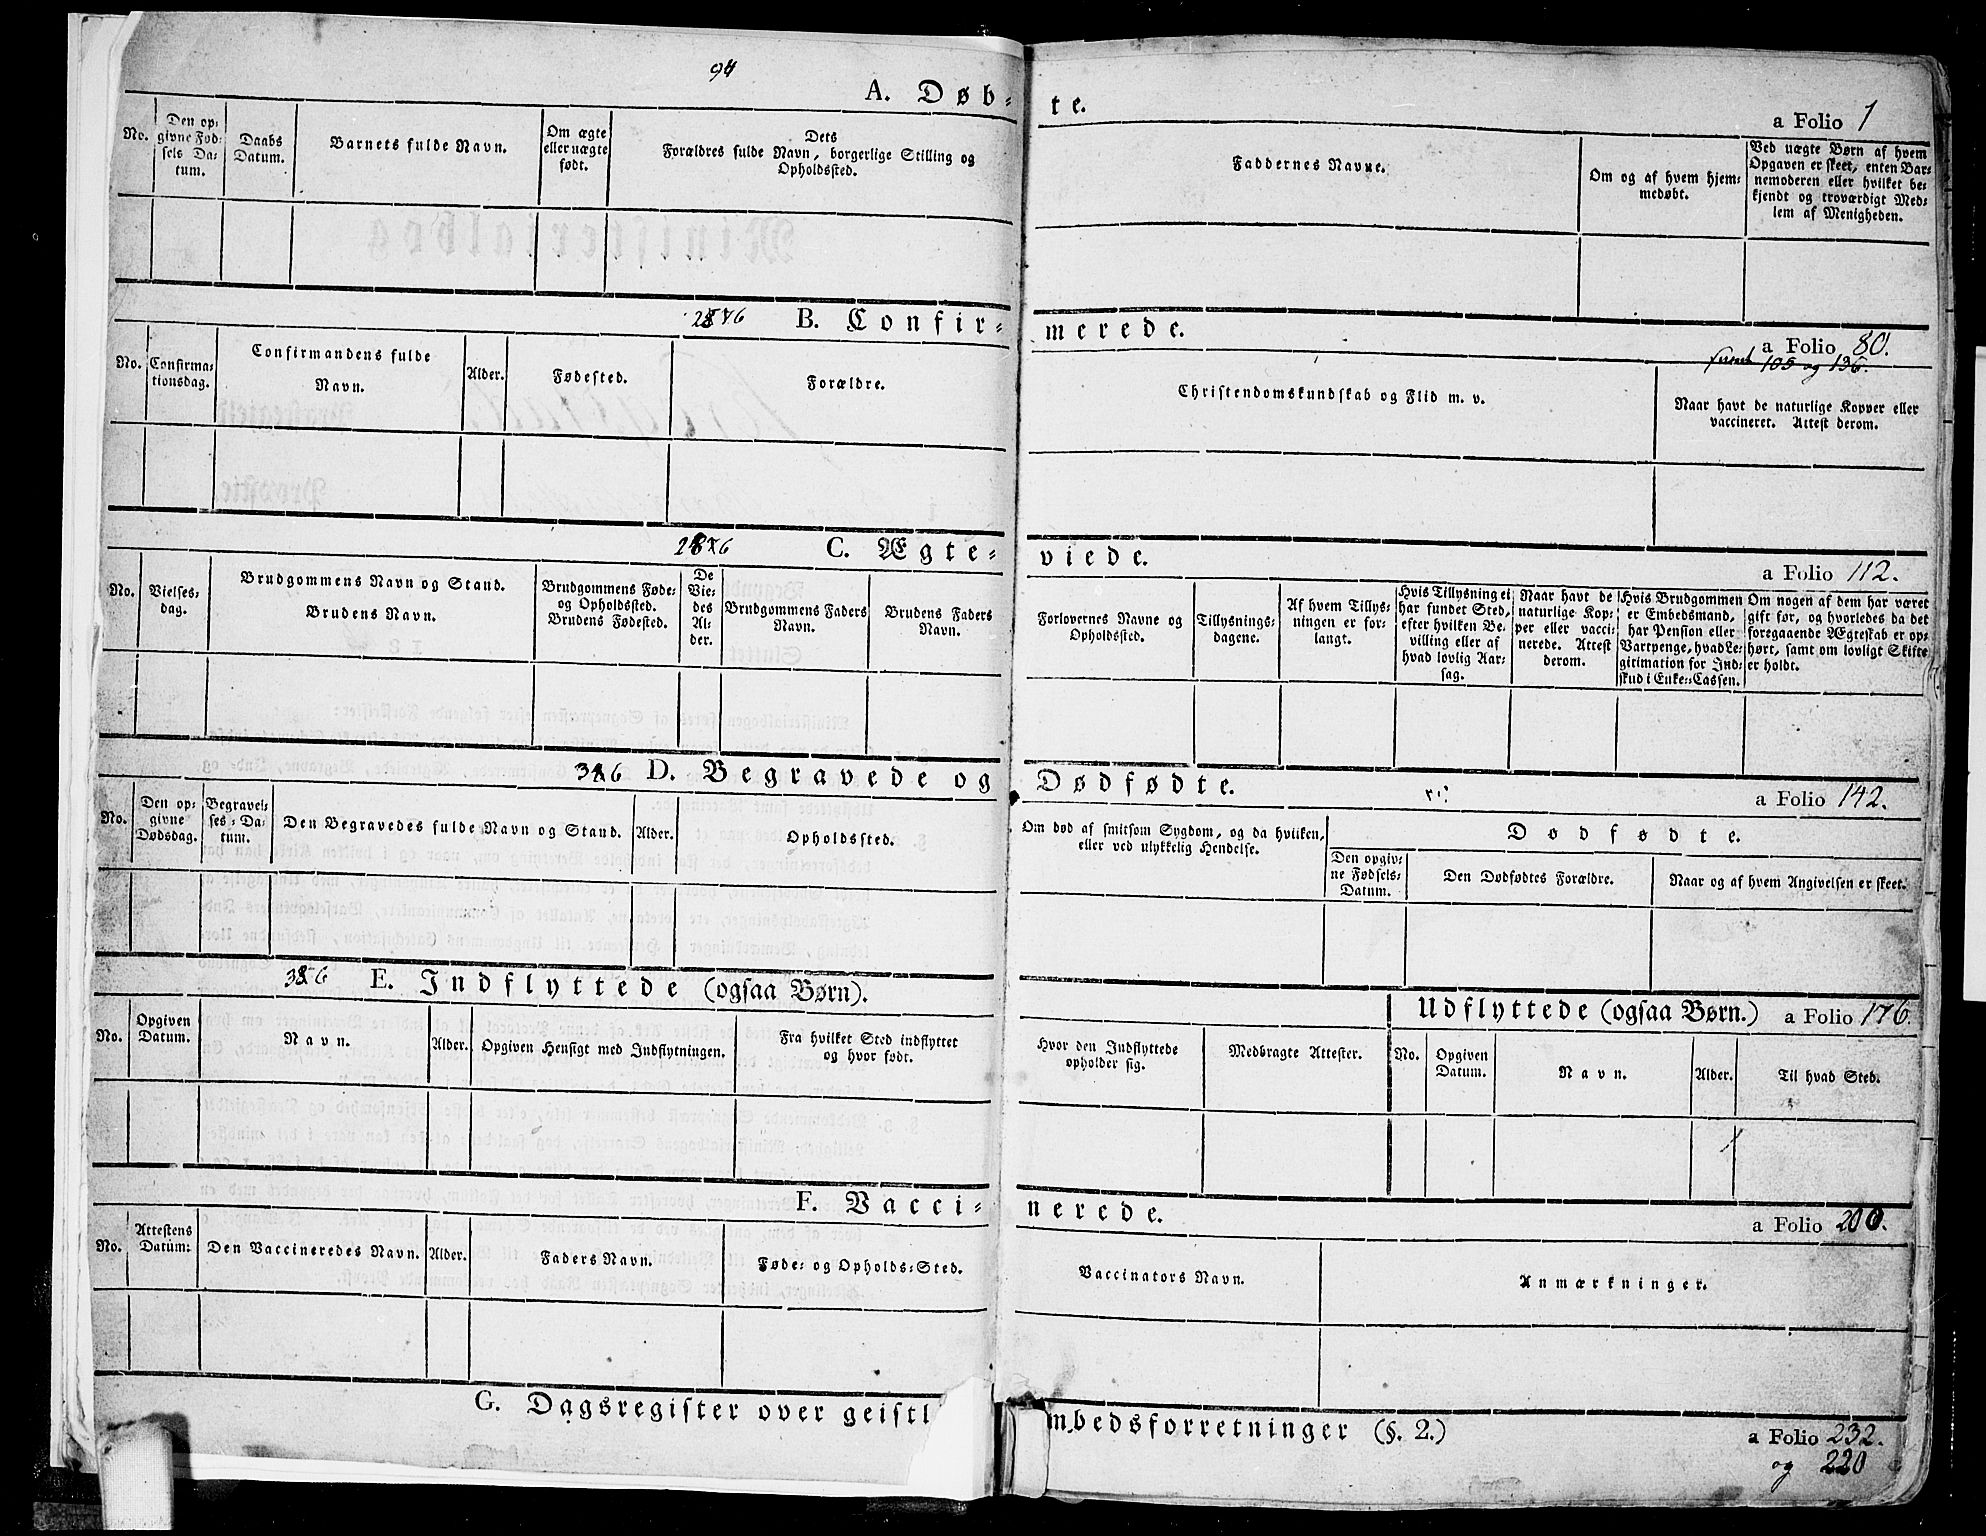 94
A. Døb-
te.
a Folio 1
No.
Den op-
givne Fød-
sels Da-
tum.
Daabs
Datum.
Barnets fulde Navn.
Om ægte
eller uægte
født.
Dets
Forældres fulde Navn, borgerlige Stilling og
Opholdssted.
Faddernes Navne.
Om og af hvem hjem-
medøbt.
Ved uægte Børn af hvem
Opgaven er skeet, enten Bar-
nemoderen eller hvilket be-
kjendt og troværdigt Med-
lem af Menigheden.
B. Confir-
merede.
a Folio 80.
105 og 136.
No.
Confirma-
tionsdag.
Confirmandens fulde
Navn.
Alder.
Fødested.
Forældre.
Christendomskundskab og Flid m. v.
Naar havt de naturlige Kopper eller
vaccineret. Attest derom.
C. Ægte-
viede.
a Folio 112.
No.
Vielses-
dag.
Brudgommens Navn og Stand.
Brudens Navn.
Brudgommens Føde-
og Opholdssted.
Brudens Fødested.
De
Vie-
des
Al-
der.
Brudgommens Faders
Navn.
Brudens Faders
Navn.
Forlovernes Navne og
Opholdssted.
Tillysnings-
dagene.
Af hvem Tillys-
ningen er for-
langt.
Hvis Tillysning ei
har fundet Sted,
efter hvilken Be-
villing eller af
hvad lovlig Aar-
sag.
Naar havt de
naturlige Kop-
per eller vacci-
nerede. Attest
derom.
Hvis Brudgommen
er Embedsmand,
har Pension eller
Vartpenge, hvad Le-
gitimation for Ind-
skud i Enke-Cassen.
Om nogen af dem har været
gift før, og hvorledes da det
foregaaende Ægteskab er op-
hørt, samt om lovligt Skifte
er holdt.
D. Begravede og
Dødfødte.
a Folio 142.
No.
Den op-
givne
Dødsdag.
Begravel-
ses-Da-
tum.
Den Begravedes fulde Navn og Stand.
Alder.
Opholdssted.
Om død af smitsom Sygdom, og da hvilken,
eller ved ulykkelig Hendelse.
Dødfødte.
Den opgiv-
ne Fødsels-
Datum.
Den Dødfødtes Forældre.
Naar og af hvem Angivelsen er skeet.
E. Indflyttede (ogsaa Børn).
Udflyttede (ogsaa Børn.)
a Folio 176.
No.
Opgiven
Datum.
Navn.
Alder.
Opgiven Hensigt med Indflytningen.
Fra hvilket Sted indflyttet
og hvor født.
Hvor den Indflyttede
opholder sig.
Medbragte Attester.
No.
Opgiven
Datum.
Navn.
Alder.
Til hvad Sted.
F. Vacci-
nerede.
a Folio 200.
No.
Attestens
Datum:
Den Vaccineredes Navn.
Alder.
Faders Navn.
Føde- og Opholds-Sted.
Vaccinators Navn.
Anmærkninger.
G. Dagsregister over geistl
mbedsforretninger (§. 2.)
a Folio 232.
og 220